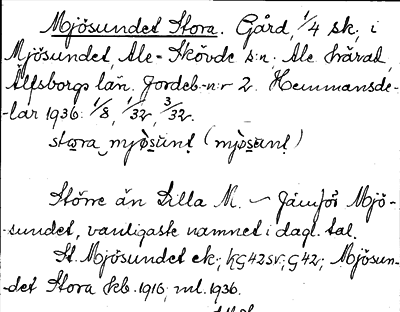 Mjösundet Stora. Gård, 1/4 sk; i
Mjösundet, Ale-Skövde s:n. Ale härad,
Älfsborgs län. Jordeb.-n:r 2. Hemmansde-
-lar 1936: 1/8, 1/32, 3/32.
stora mjösunt (mjösunt)
Större än Lilla M. – Jämför Mjö-
-sundet, vanligaste namnet i dagl. tal.
St. Mjösundet ek; kG42sv; G42; Mjösun-
-det Stora kb. 1916; ml. 1936.